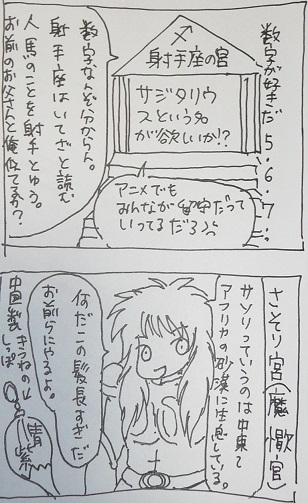 数字が好きだ5.6.7…
射手座の宮
サジタリウ
スという%
が欲しいか!?
数字なんぞ分からん。
射手座はいてざと読む
人馬のことを射手とゆう。
お前のお父さんと俺似てる?
アニメでも
みんなが留守だって
いってるだろう
さそり宮(魔蝎宮
サソリっていうのは中東や
アフリカの砂漠に生息している。
何だこの髪長すぎだ
お前らにやるよ。
中国製きつねの
しっぽ